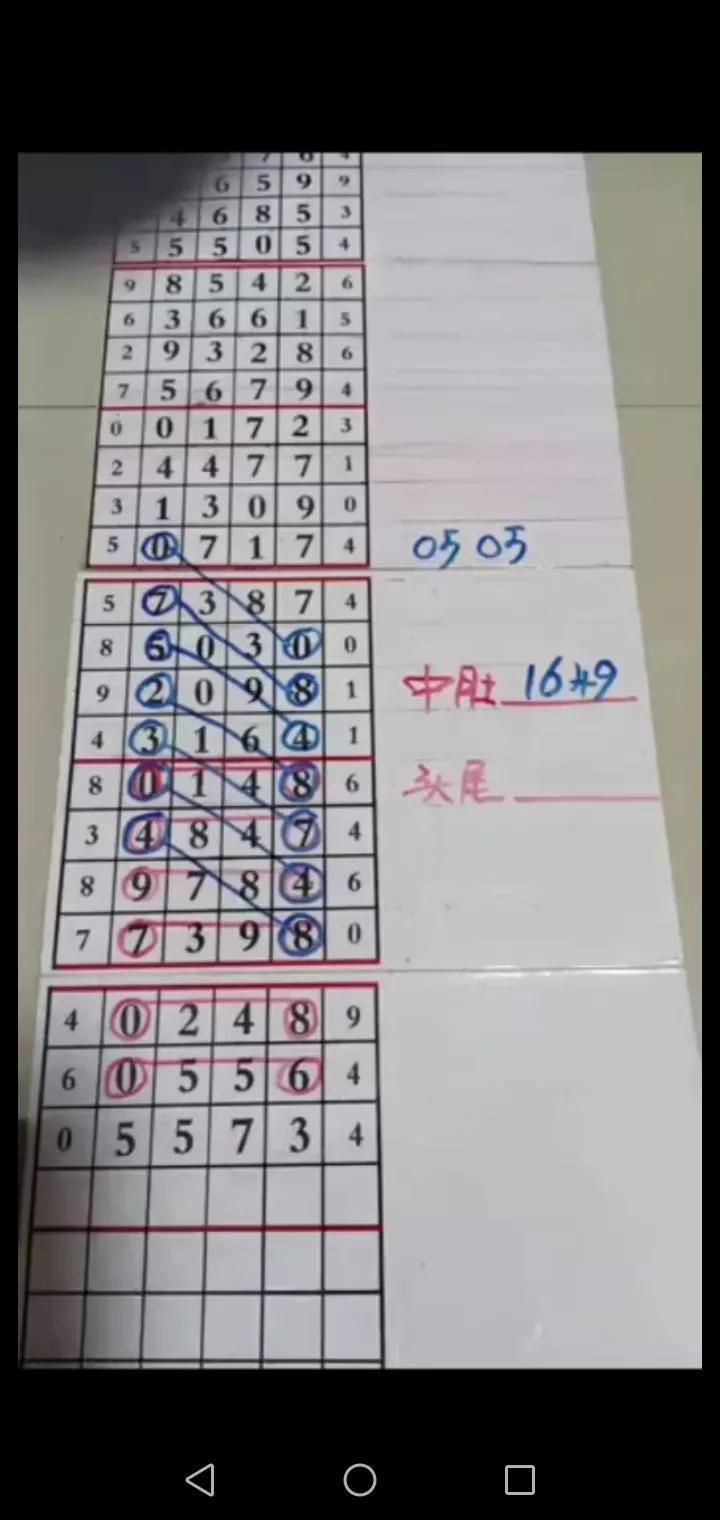 6 5 9 9
4 6 8 5 3
5 5 5 0 5 4
9 8 5 4 2 6
6 3 6 6 1 5
2 9 3 2 8 6
7 5 6 7 9 4
0 0 1 7 2 3
2 4 4 7 7 1
3 1 3 0 9 0
5 0 7 1 7 4 05 05
5 7 3 8 7 4
8 6 0 3 0 0
9 2 0 9 8 1 中肚 16*9
4 3 1 6 4 1
8 0 1 4 8 6 头尾
3 4 8 4 7 4
8 9 7 8 4 6
7 7 3 9 8 0
4 0 2 4 8 9
6 0 5 5 6 4
0 5 5 7 3 4